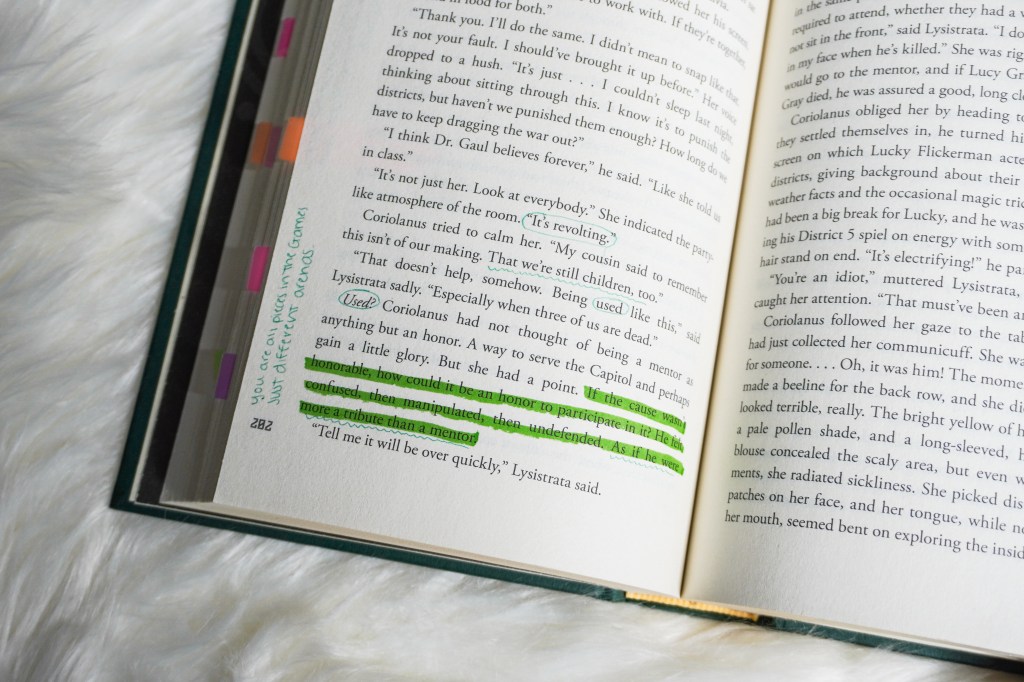 in food for both."
to work with. If they're together,
"Thank you. I'll do the same. I didn't mean to snap like that.
It's not your fault. I should've brought it up before." Her voice
dropped to a hush. "It's just . . . I couldn't sleep last night,
thinking about sitting through this. I know it's to punish the
districts, but haven't we punished them enough? How long do we
have to keep dragging the war out?"
"I think Dr. Gaul believes forever," he said. "Like she told us
in class."
"It's not just her. Look at everybody." She indicated the party-
like atmosphere of the room. "It's revolting."
Coriolanus tried to calm her. "My cousin said to remember
this isn't of our making. That we're still children, too."
"That doesn't help, somehow. Being used like this," said
Lysistrata sadly. "Especially when three of us are dead."
Used? Coriolanus had not thought of being a mentor as
anything but an honor. A way to serve the Capitol and perhaps
gain a little glory. But she had a point. If the cause wasn't
honorable, how could it be an honor to participate in it? He felt
confused, then manipulated, then undefended. As if he were
more a tribute than a mentor.
"Tell me it will be over quickly," Lysistrata said.
202
you are all pieces in the Games
Just different arenas.
in the same
required to attend, whether they had a
not sit in the front," said Lysistrata. "I do
in my face when he's killed." She was rig
would go to the mentor, and if Lucy Gr
Gray died, he was assured a good, long cl
Coriolanus obliged her by heading to
they settled themselves in, he turned hi
screen on which Lucky Flickerman acte
districts, giving background about their
weather facts and the occasional magic tric
had been a big break for Lucky, and he was
ing his District 5 spiel on energy with som
hair stand on end. "It's electrifying!" he pa
"You're an idiot," muttered Lysistrata,
caught her attention. "That must've been an
Coriolanus followed her gaze to the tab
had just collected her communicuff. She wa
for someone. . . . Oh, it was him! The mome
made a beeline for the back row, and she di
looked terrible, really. The bright yellow of h
a pale pollen shade, and a long-sleeved, h
blouse concealed the scaly area, but even w
ments, she radiated sickliness. She picked dis
patches on her face, and her tongue, while no
her mouth, seemed bent on exploring the insid